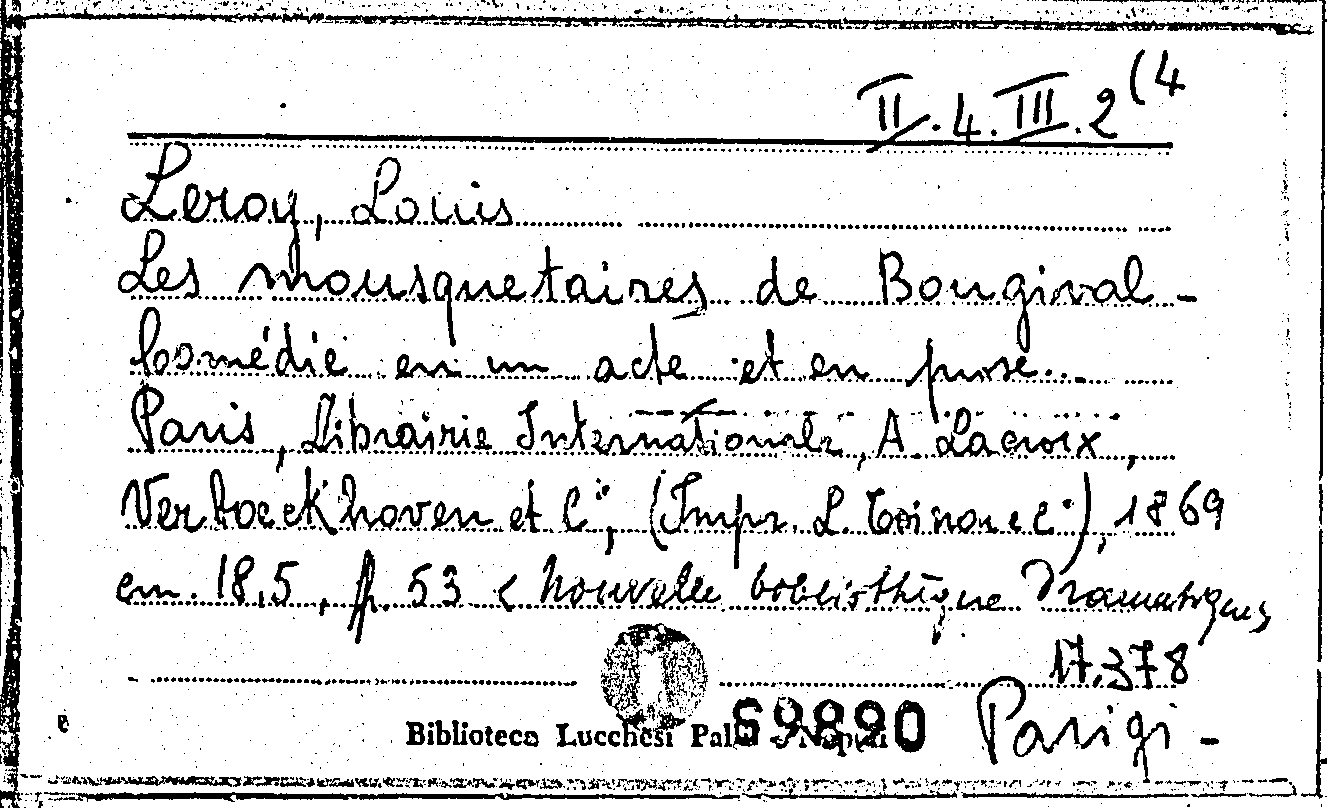 II.4.III.2(4
Leroy, Louis
Les mousquetaires de Bougival -
Comédie en un acte et en prose...
Paris, Librairie Internationale, A. Lacroix,
Verboeckhoven et C.ie, (Impr. L. Toinon e C.ie), 1869
cm. 18,5, p. 53 < Nouvelle bibliothèque Dramatiques
17.378
Biblioteca Lucchesi Palli - Napoli
69890
Parigi -